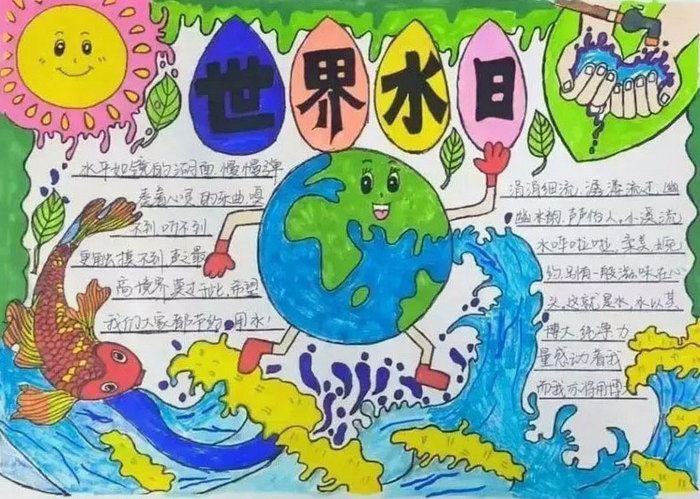 世界水日
水平如镜的湖面慢慢弹
奏着心灵的乐曲嗅
不到听不到
更用去摸不到声之最
高境界莫于此,希望
我们大家都节约用水!
涓涓细流,潺潺流过,幽
幽水韵,声声怡人,小溪流
水哗啦啦,柔美婉
约,别有一般滋味在心
头,这就是水,水以其
博大纯净力
量感动着我
而我亦将用博